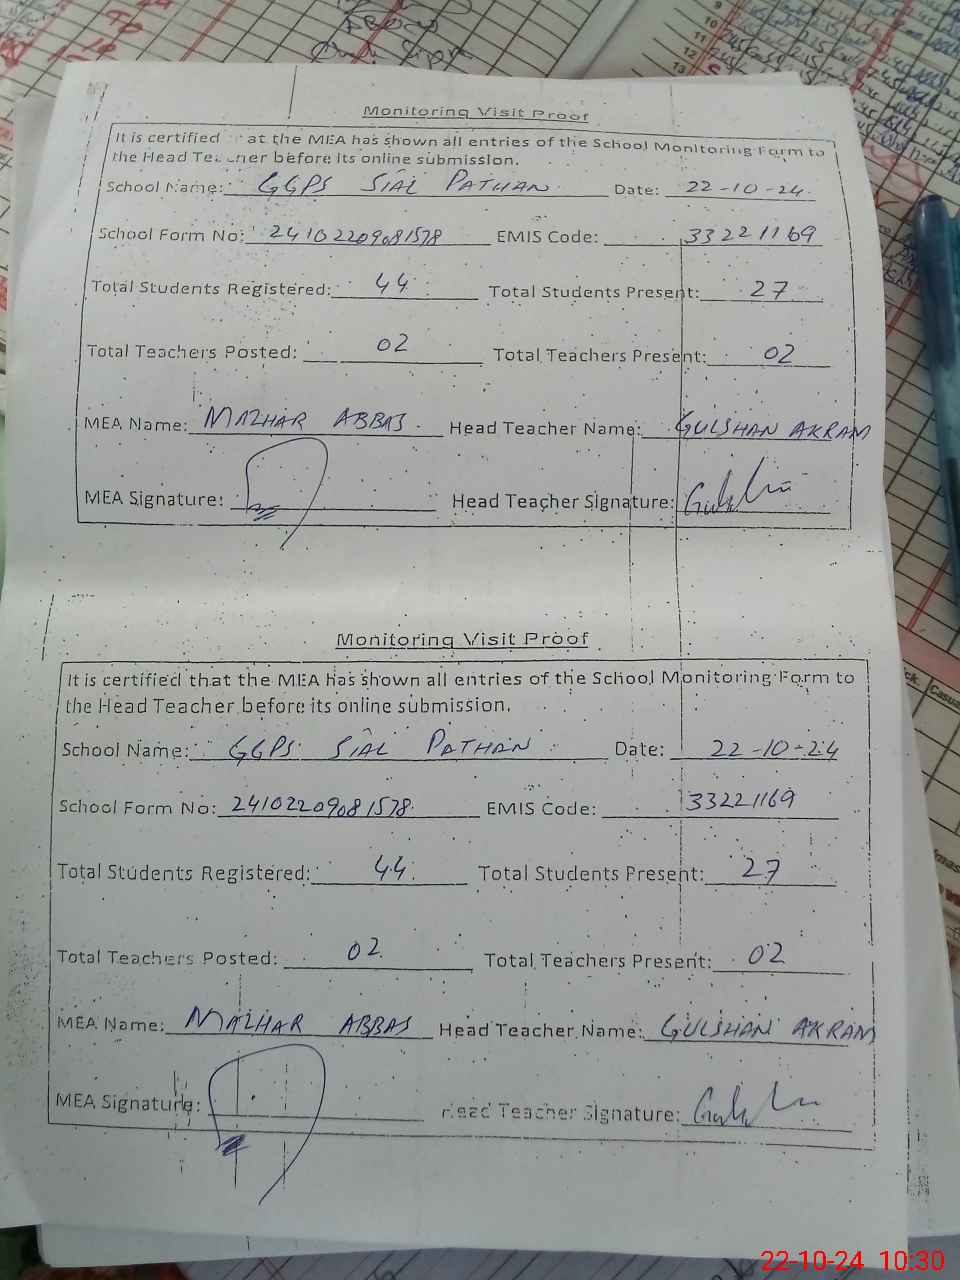 Monitoring Visit Proof
It is certified at the MEA has shown all entries of the School Monitoring Form to
the Head Teacher before its online submission.
School Name: GGPS SIAL PATHAN Date: 22-10-24
School Form No: 24102209081578 EMIS Code: 33221169
Total Students Registered: 44 Total Students Present: 27
Total Teachers Posted: 02 Total Teachers Present: 02
MEA Name: MAZHAR ABBAS Head Teacher Name: GULSHAN AKRAM
MEA Signature: Head Teacher Signature:
Monitoring Visit Proof
It is certified that the MEA has shown all entries of the School Monitoring Form to
the Head Teacher before its online submission.
School Name: GGPS SIAL PATHAN Date: 22-10-24
School Form No: 24102209081578 EMIS Code: 33221169
Total Students Registered: 44 Total Students Present: 27
Total Teachers Posted: 02 Total Teachers Present: 02
MEA Name: MAZHAR ABBAS Head Teacher Name: GULSHAN AKRAM
MEA Signature: Head Teacher Signature:
22-10-24 10:30